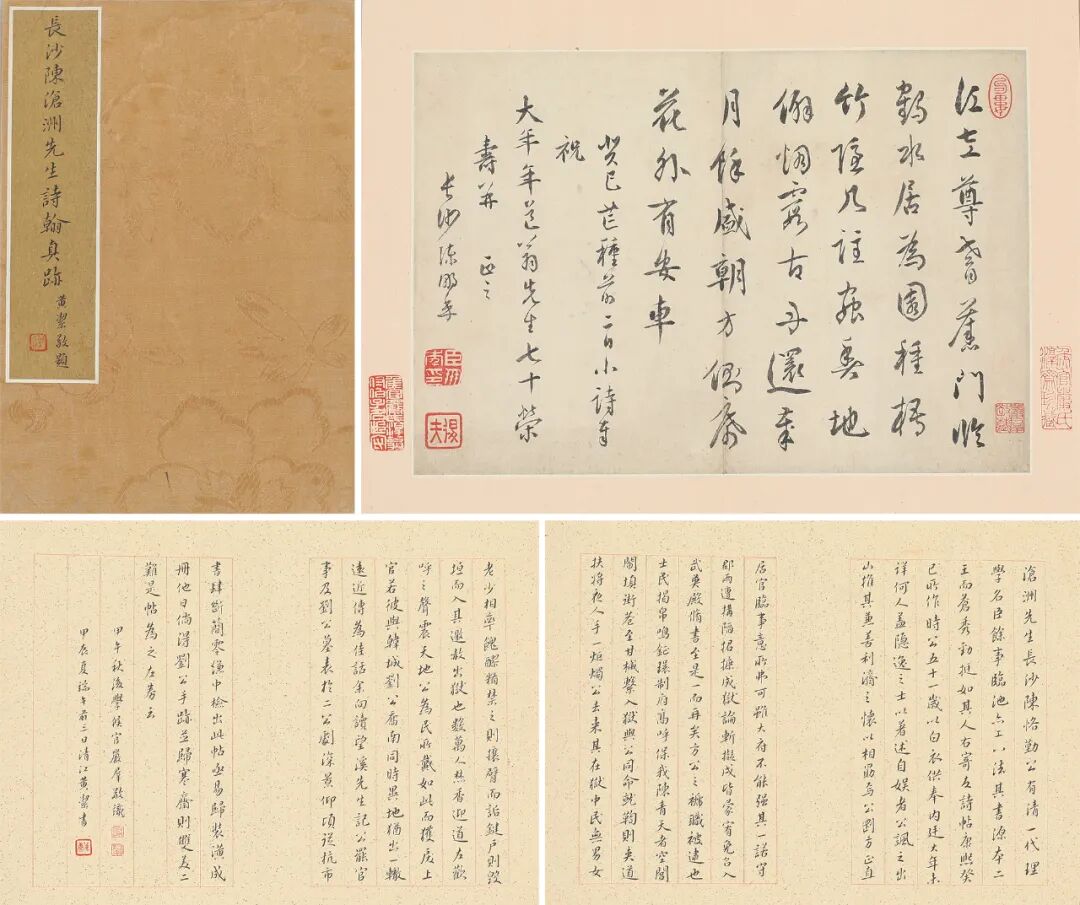 長沙陳滄洲先生詩翰真跡
黃絜敬題
江左尊耆舊門臨
鶴水居為園種橘
竹隱几註蟲魚地
僻烟霞古身還歲
月餘盛朝方側席
花外有安車
癸巳芒種前二日小詩奉
祝
大年年道翁先生七十榮
壽并 正之
長沙陳鵬年
滄洲先生長沙陳恪勤公有清一代理
學名臣餘事臨池亦工八法其書源本二
王而蒼秀勁挺如其人右寄左詩帖康熙癸
巳所作時公五十一歲以白衣供奉內廷大年未
詳何人蓋隱逸之士以著述自娛者公諷之出
山推其兼善利濟之懷以相勗焉公剛方正直
居官臨事意所弗可雖大府不能強其一諾守
郡兩遭搆陷招撫成獄論斬擬戍皆蒙宥免召入
武英殿脩書至是一而再矣方公之褫職被逮也
士民揭帛鳴鉦環制府高呼保我陳青天者空閭
闔填街巷至甘械繫入獄與公同命就鞫則夾道
扶將夜人手一炬燭公去來其在獄中民無男女
老少相率餽醪糈禁之則攘臂而詬鍵戶則毀
垣而入其邀赦出獄也數萬人焚香迎道左歡
呼之聲震天地公為民所戴如此而獲戾上
官若彼與韓城劉公喬南同時異地猶出一轍
遠近傳為佳話余向讀望溪先生記公罷官
事及劉公墓表於二公劇深景仰頃從杭市
書肆斷簡零縑中檢出此帖亟易歸裝潢成
冊他日倘得劉公手跡並歸寒齋則雙美二
難是帖為之左券云
甲午秋後學侯官嚴羣敬識
甲辰夏端午前三日清江黃絜書